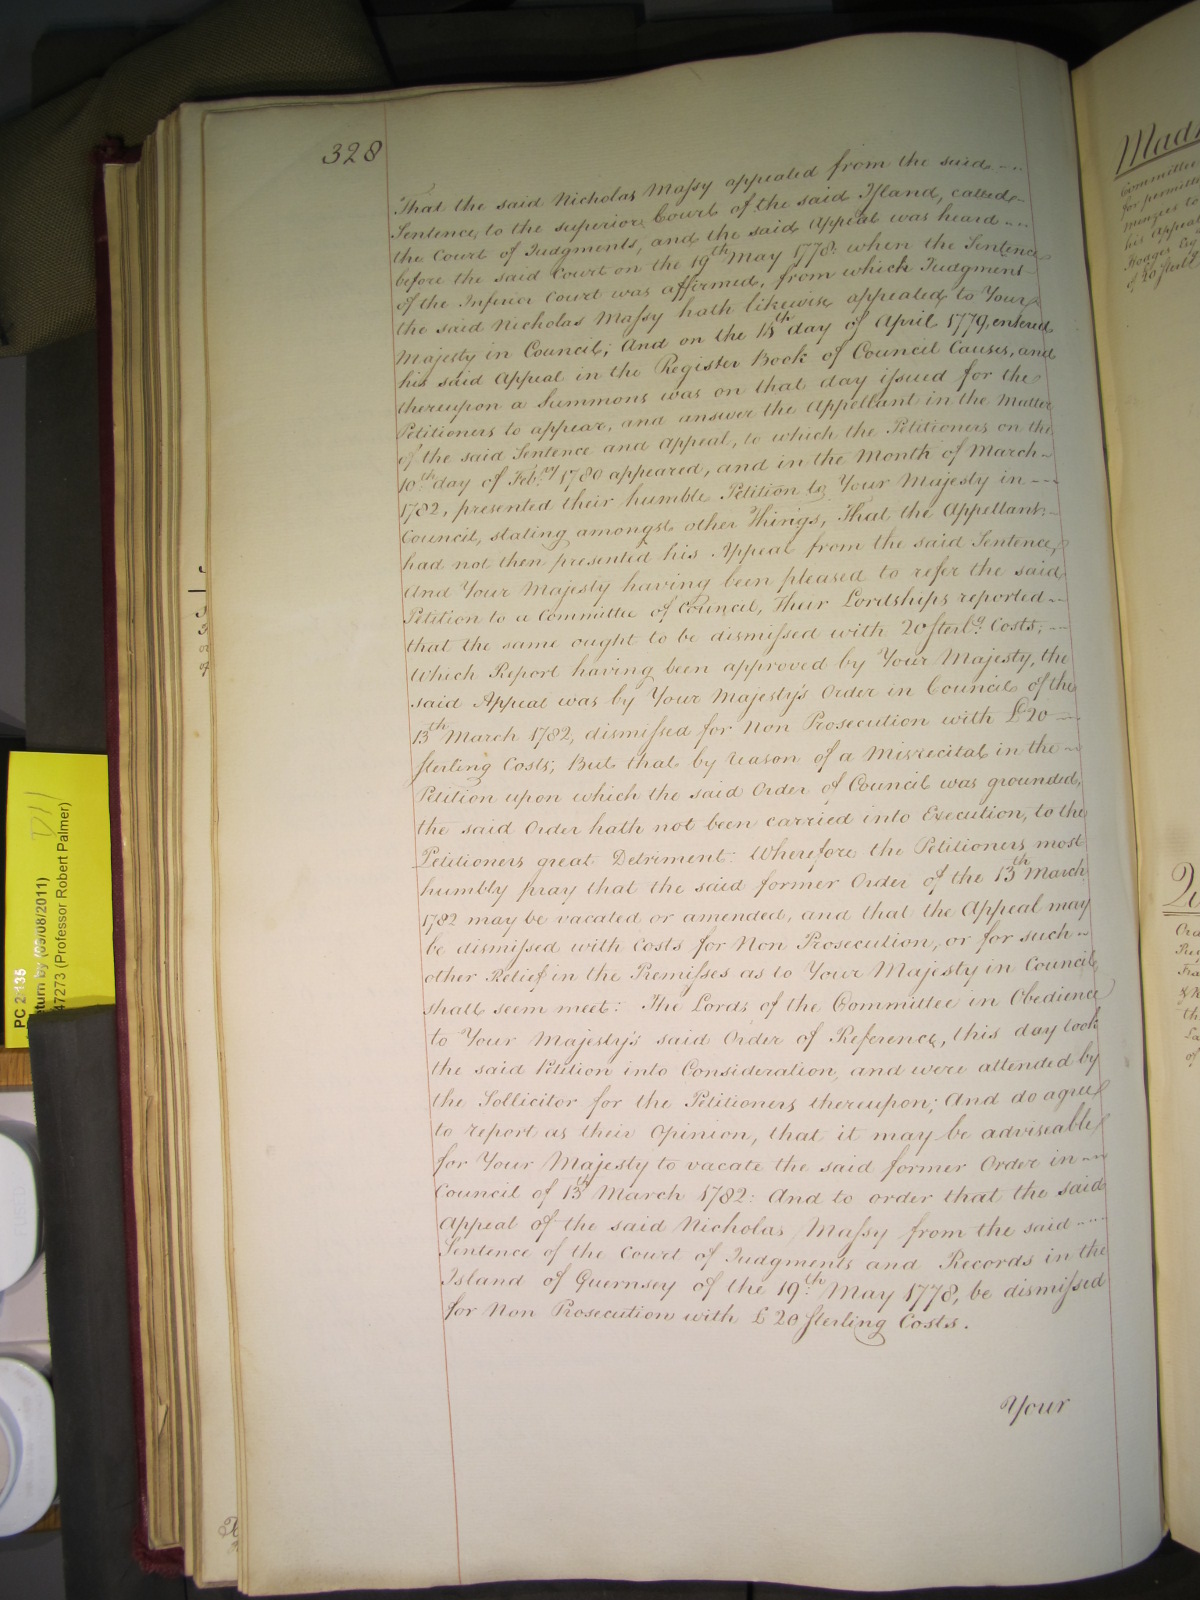 328
That the said Nicholas Maſsy appealed from the said
Sentence, to the superior Court of the said Iſland, called
the Court of Judgments, and the said Appeal was heard
before the said Court on the 19th May 1778. when the Sentence
of the Inferior Court was affirmed, from which Judgment
the said Nicholas Maſsy hath likewise appealed to Your
Majesty in Council; And on the 15th day of April 1779, entered
his said Appeal in the Register Book of Council Causes, and
thereupon a Summons was on that day iſsued for the
Petitioners to appear, and answer the Appellant in the Matter
of the said Sentence and Appeal, to which the Petitioners on the
10th day of Febry 1780 appeared, and in the Month of March
1782, presented their humble Petition to Your Majesty in
Council, stating amongst other Things, That the Appellant
had not then presented his Appeal from the said Sentence,
And Your Majesty having been pleased to refer the said
Petition to a Committee of Council, Their Lordships reported
that the same ought to be dismiſsed with 20 Sterlg. Costs;
Which Report having been approved by Your Majesty, the
said Appeal was by Your Majesty's Order in Council of the
13th March 1782, dismiſsed for Non Prosecution with £20
Sterling Costs; But that by reason of a Misrecital in the
Petition upon which the said Order of Council was grounded,
the said Order hath not been carried into Execution, to the
Petitioners great Detriment: Wherefore the Petitioners most
humbly pray that the said former Order of the 13th March
1782 may be vacated or amended, and that the Appeal may
be dismiſsed with Costs for Non Prosecution, or for such
other Relief in the Premiſses as to Your Majesty in Council
shall seem meet: The Lords of the Committee in Obedience
to Your Majesty's said Order of Reference, this day took
the said Petition into Consideration, and were attended by
the Sollicitor for the Petitioners thereupon; And do agree
to report as their Opinion, that it may be adviseable
for Your Majesty to vacate the said former Order in
Council of 13th March 1782: And to order that the said
Appeal of the said Nicholas Maſsy from the said
Sentence of the Court of Judgments and Records in the
Island of Guernsey of the 19th May 1778, be dismiſsed
for Non Prosecution with £20 Sterling Costs.
Your
PC 2 135
eturn by (09/08/2011)
47273 (Professor Robert Palmer)
D11
Committee
for permitti
menzies to
his Appeal